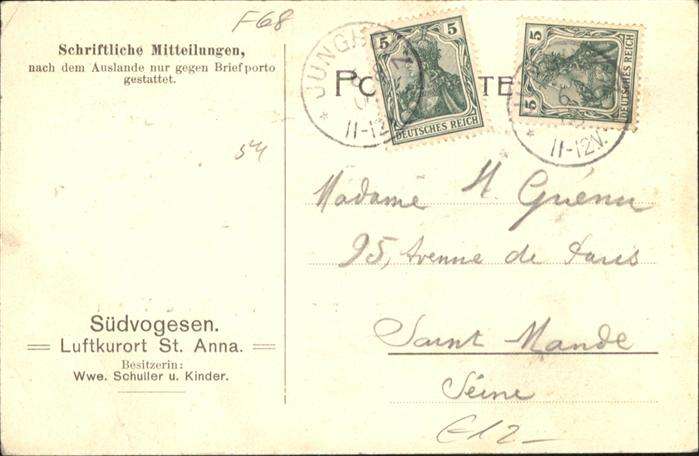 F68
Schriftliche Mitteilungen,
nach dem Auslande nur gegen Briefporto
gestattet.
5 5
DEUTSCHES REICH
11-12V.
5 5
DEUTSCHES REICH
11-12V.
54
Madame H Guénin
95, Avenue de Paris
Saint Mandé
Seine
Südvogesen.
Luftkurort St. Anna.
Besitzerin:
Wwe. Schuller u. Kinder.
£12-